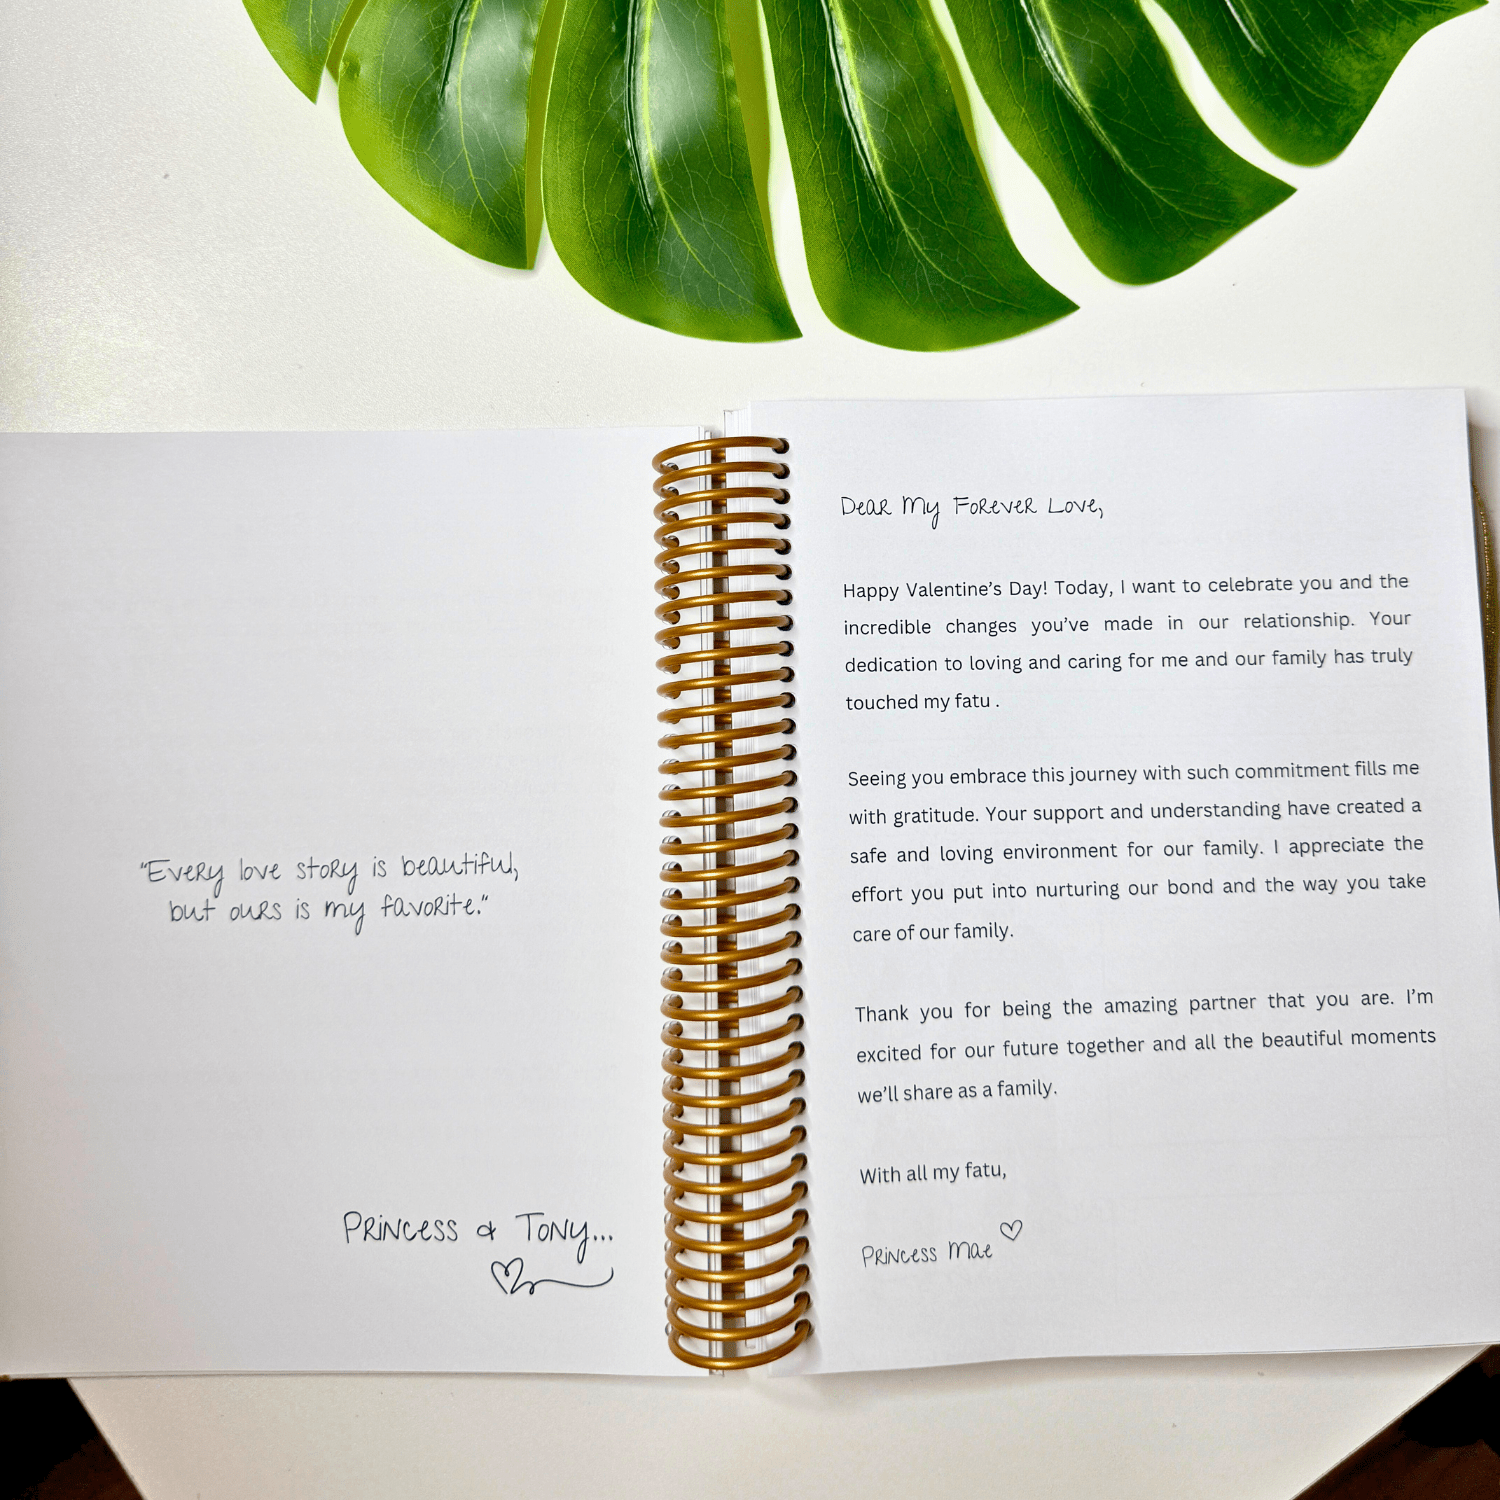 "Every love story is beautiful,
but ours is my favorite."
Princess & Tony...
Dear My Forever Love,
Happy Valentine's Day! Today, I want to celebrate you and the
incredible changes you've made in our relationship. Your
dedication to loving and caring for me and our family has truly
touched my fatu .
Seeing you embrace this journey with such commitment fills me
with gratitude. Your support and understanding have created a
safe and loving environment for our family. I appreciate the
effort you put into nurturing our bond and the way you take
care of our family.
Thank you for being the amazing partner that you are. I'm
excited for our future together and all the beautiful moments
we'll share as a family.
With all my fatu,
Princess Mae